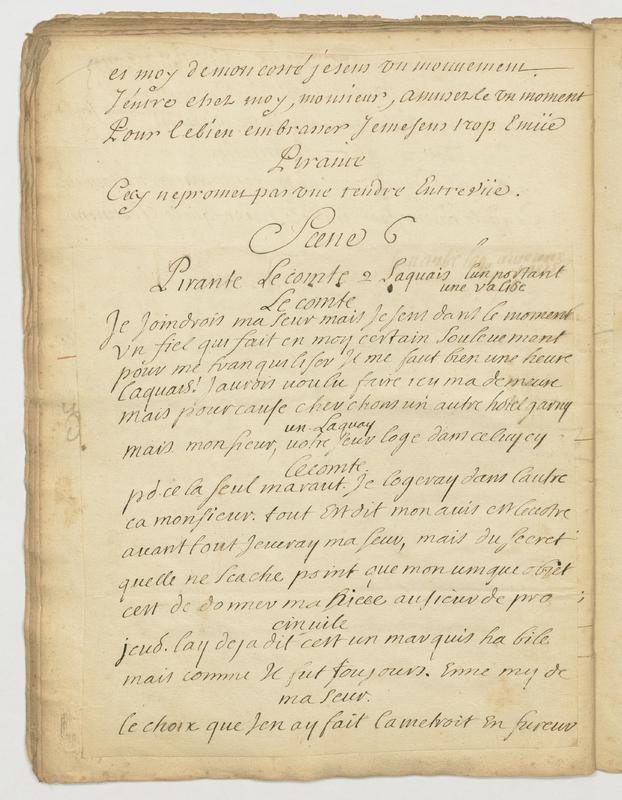 et moy demon costé jesens vn mouuement.
J'entre chez moy, monsieur, amusez le vn moment
Pour lebien embrasser Jemesens trop Emüe
Pirante
Cecy nepromet pas vne tendre Entreveüe.
Scene 6
Pirante Le comte 2 Laquais lun portant
une valise
Le comte
Je Joindrois ma seur mais Je sens dans le moment
vn fiel qui fait en moy certain soulevement
pour me tranquiliser Il me faut bien une heure
Laquais! J'aurois voulu faire icy ma demeure
mais pour cause cherchons un autre hotel garny
un Laquay
mais monsieur, votre seur loge dans celuy cy
le comte
pd. ce la seul maraut. Je logeray dans lautre
ca monsieur. tout Est dit mon auis est le vostre
avant tout Jeveray ma seur, mais du secret
quelle ne scache point que mon unique objet
cest de donner ma Niece au sieur de pro
cinuile
jeud. lay deja dit cest un marquis habile
mais comme Il fut toujours. Enne my de
ma seur.
le choix que Jen ay fait lametroit En fureur